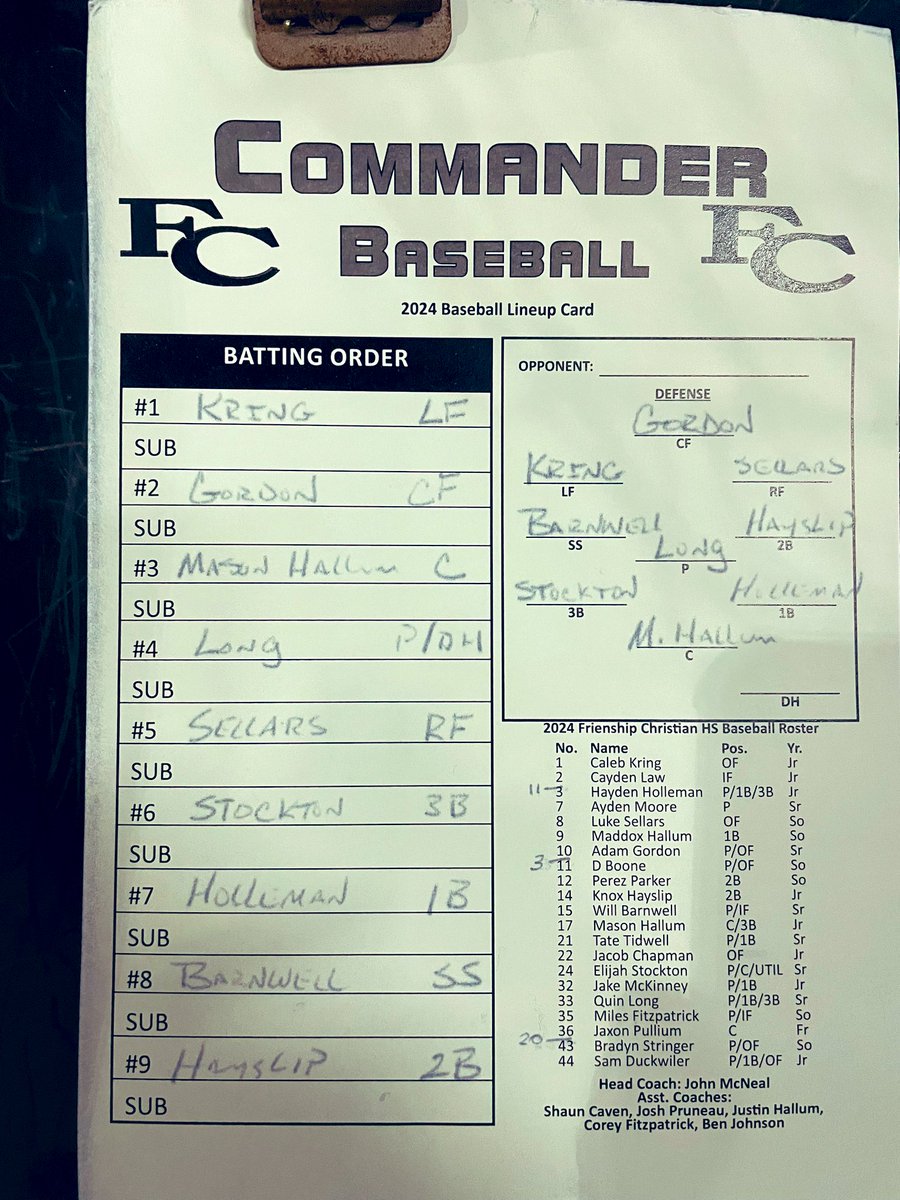 COMMANDER
FC BASEBALL FC
2024 Baseball Lineup Card
BATTING ORDER
#1 KRING LF
SUB
#2 GORDON CF
SUB
#3 MASON HALLUM C
SUB
#4 LONG P/DH
SUB
#5 SELLARS RF
SUB
#6 STOCKTON 3B
SUB
#7 HOLLEMAN 1B
SUB
#8 BARNWELL SS
SUB
#9 HAYSLIP 2B
SUB
OPPONENT:
DEFENSE
GORDON
CF
KRING SELLARS
LF RF
BARNWELL HAYSLIP
SS 2B
LONG
P
STOCKTON HOLLEMAN
3B 1B
M. HALLUM
C
DH
2024 Frienship Christian HS Baseball Roster
No. Name Pos. Yr.
1 Caleb Kring OF Jr
2 Cayden Law IF Jr
11 3 Hayden Holleman P/1B/3B Jr
7 Ayden Moore P Sr
8 Luke Sellars OF So
9 Maddox Hallum 1B So
10 Adam Gordon P/OF Sr
3 11 D Boone P/OF So
12 Perez Parker 2B So
14 Knox Hayslip 2B Jr
15 Will Barnwell P/IF Sr
17 Mason Hallum C/3B Jr
21 Tate Tidwell P/1B Sr
22 Jacob Chapman OF Jr
24 Elijah Stockton P/C/UTIL Sr
32 Jake McKinney P/1B Jr
33 Quin Long P/1B/3B Sr
35 Miles Fitzpatrick P/IF So
36 Jaxon Pullium C Fr
20 43 Bradyn Stringer P/OF So
44 Sam Duckwiler P/1B/OF Jr
Head Coach: John McNeal
Asst. Coaches:
Shaun Caven, Josh Pruneau, Justin Hallum,
Corey Fitzpatrick, Ben Johnson